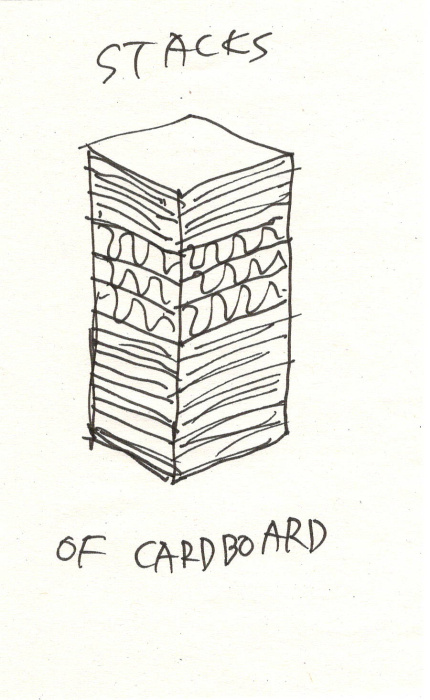 STACKS
OF CARDBOARD